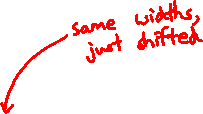 same widths,
just shifted